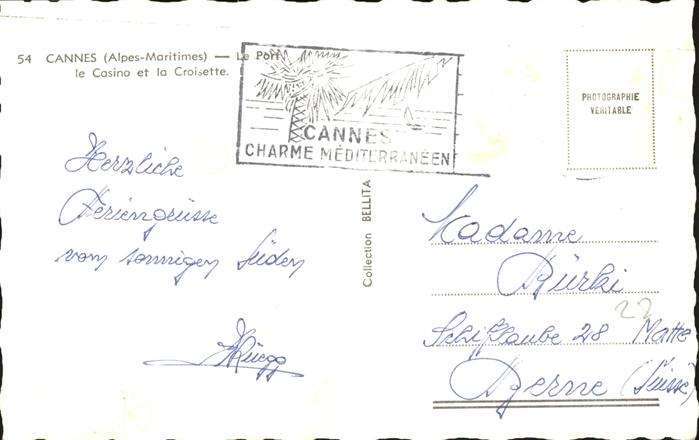 54 CANNES (Alpes-Maritimes) — Le Port
le Casino et la Croisette.
CANNES
CHARME MÉDITERRANÉEN
PHOTOGRAPHIE
VÉRITABLE
Herzliche
Feriengrüsse
vom sonnigen Süden
Rüegg
Collection BELLITA
Madame
Bürki
22
Schifflaube 28 Matte
Berne (Suisse)